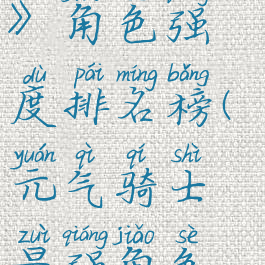 》角色强
dù pái míng bǎng
度排名榜(
yuán qì qí shì
元气骑士
zuì qiáng jiǎo sè
最强角色